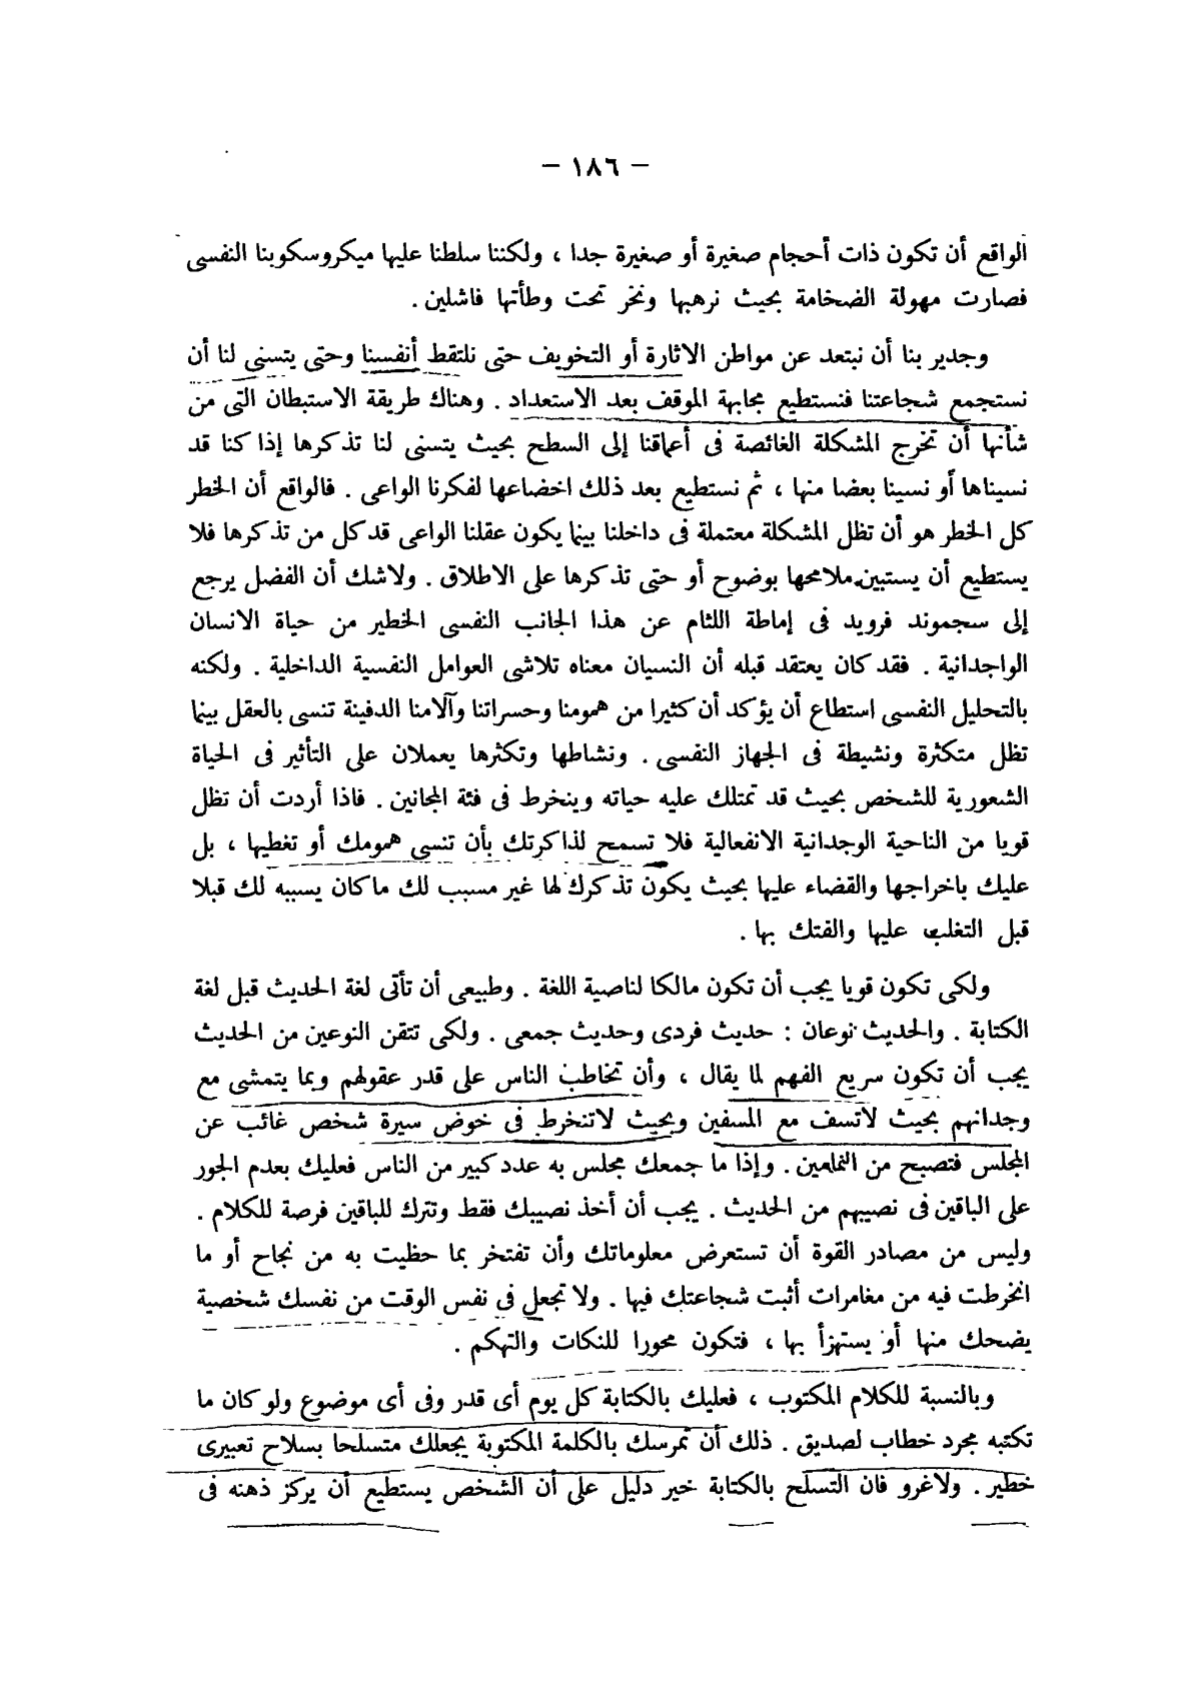 — ١٨٦ —
الواقع أن تكون ذات أحجام صغيرة أو صغيرة جدا ، ولكننا سلطنا عليها ميكروسكوبنا النفسى
فصارت مهولة الضخامة بحيث نرهبها ونخر تحت وطأتها فاشلين .
وجدير بنا أن نبتعد عن مواطن الاثارة أو التخويف حتى نلتقط أنفسنا وحتى يتسنى لنا أن
نستجمع شجاعتنا فنستطيع مجابهة الموقف بعد الاستعداد . وهناك طريقة الاستبطان التى من
شأنها أن تخرج المشكلة الغائصة فى أعماقنا إلى السطح بحيث يتسنى لنا تذكرها إذا كنا قد
نسيناها أو نسينا بعضا منها ، ثم نستطيع بعد ذلك اخضاعها لفكرنا الواعى . فالواقع أن الخطر
كل الخطر هو أن تظل المشكلة معتملة فى داخلنا بينما يكون عقلنا الواعى قد كل من تذكرها فلا
يستطيع أن يستبين ملامحها بوضوح أو حتى تذكرها على الاطلاق . ولاشك أن الفضل يرجع
إلى سجموند فرويد فى إماطة اللثام عن هذا الجانب النفسى الخطير من حياة الانسان
الواجدانية . فقد كان يعتقد قبله أن النسيان معناه تلاشى العوامل النفسية الداخلية . ولكنه
بالتحليل النفسى استطاع أن يؤكد أن كثيرا من همومنا وحسراتنا وآلامنا الدفينة تنسى بالعقل بينما
تظل متكثرة ونشيطة فى الجهاز النفسى . ونشاطها وتكثرها يعملان على التأثير فى الحياة
الشعورية للشخص بحيث قد تمتلك عليه حياته وينخرط فى فئة المجانين . فاذا أردت أن تظل
قويا من الناحية الوجدانية الانفعالية فلا تسمح لذاكرتك بأن تنسى همومك أو تغطيها ، بل
عليك باخراجها والقضاء عليها بحيث يكون تذكرك لها غير مسبب لك ما كان يسببه لك قبلا
قبل التغلب عليها والفتك بها .
ولكى تكون قويا يجب أن تكون مالكا لناصية اللغة . وطبيعى أن تأتى لغة الحديث قبل لغة
الكتابة . والحديث نوعان : حديث فردى وحديث جمعى . ولكى تتقن النوعين من الحديث
يجب أن تكون سريع الفهم لما يقال ، وأن تخاطب الناس على قدر عقولهم وبما يتمشى مع
وجدانهم بحيث لاتسف مع المسفين وبحيث لاتنخرط فى خوض سيرة شخص غائب عن
المجلس فتصبح من النمامين . وإذا ما جمعك مجلس به عدد كبير من الناس فعليك بعدم الجور
على الباقين فى نصيبهم من الحديث . يجب أن أخذ نصيبك فقط وتترك للباقين فرصة للكلام .
وليس من مصادر القوة أن تستعرض معلوماتك وأن تفتخر بما حظيت به من نجاح أو ما
انخرطت فيه من مغامرات أثبت شجاعتك فيها . ولا تجعل فى نفس الوقت من نفسك شخصية
يضحك منها أو يستهزأ بها ، فتكون محورا للنكات والتهكم .
وبالنسبة للكلام المكتوب ، فعليك بالكتابة كل يوم أى قدر وفى أى موضوع ولو كان ما
تكتبه مجرد خطاب لصديق . ذلك أن تمرسك بالكلمة المكتوبة يجعلك متسلحا بسلاح تعبيرى
خطير . ولاغرو فان التسلح بالكتابة خير دليل على أن الشخص يستطيع أن يركز ذهنه فى